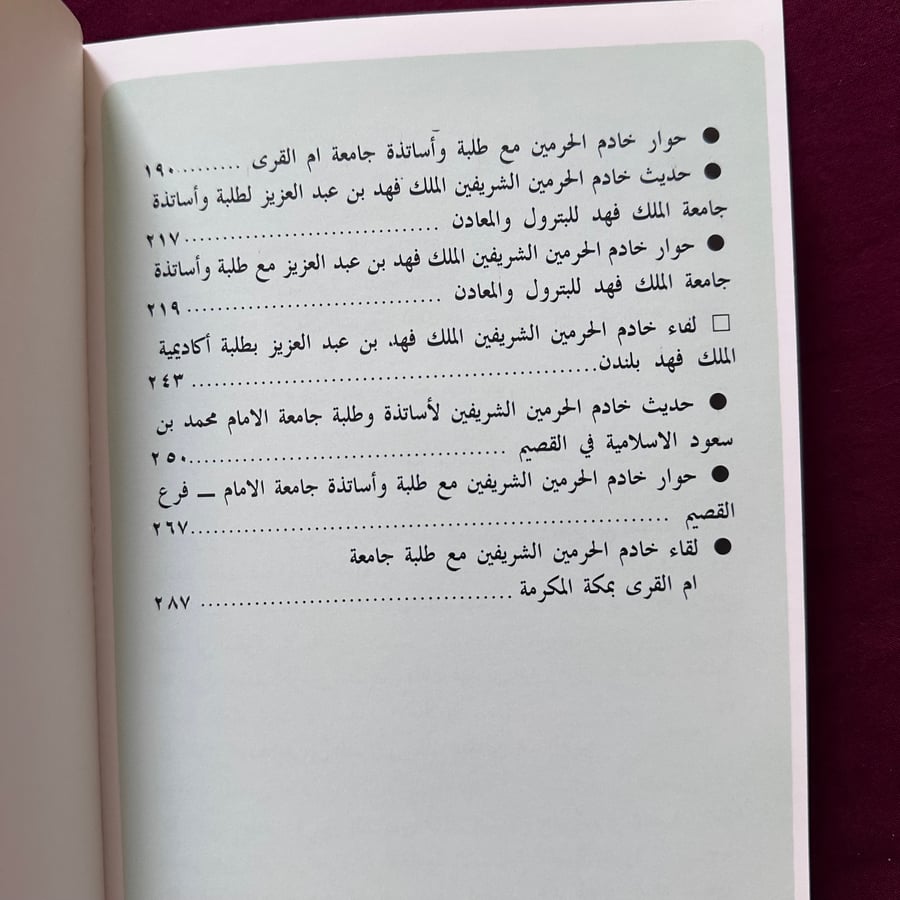 ● حوار خادم الحرمين مع طلبة وأساتذة جامعة ام القرى .......... ١٩٠
● حديث خادم الحرمين الشريفين الملك فهد بن عبد العزيز لطلبة وأساتذة
جامعة الملك فهد للبترول والمعادن ................................ ٢١٧
● حوار خادم الحرمين الشريفين الملك فهد بن عبد العزيز مع طلبة وأساتذة
جامعة الملك فهد للبترول والمعادن ................................ ٢١٩
□ لقاء خادم الحرمين الشريفين الملك فهد بن عبد العزيز بطلبة أكاديمية
الملك فهد بلندن.................................................... ٢٤٣
● حديث خادم الحرمين الشريفين لأساتذة وطلبة جامعة الامام محمد بن
سعود الاسلامية في القصيم ........................................ ٢٥٠
● حوار خادم الحرمين الشريفين مع طلبة وأساتذة جامعة الامام — فرع
القصيم ............................................................ ٢٦٧
● لقاء خادم الحرمين الشريفين مع طلبة جامعة
ام القرى بمكة المكرمة ........................................ ٢٨٧